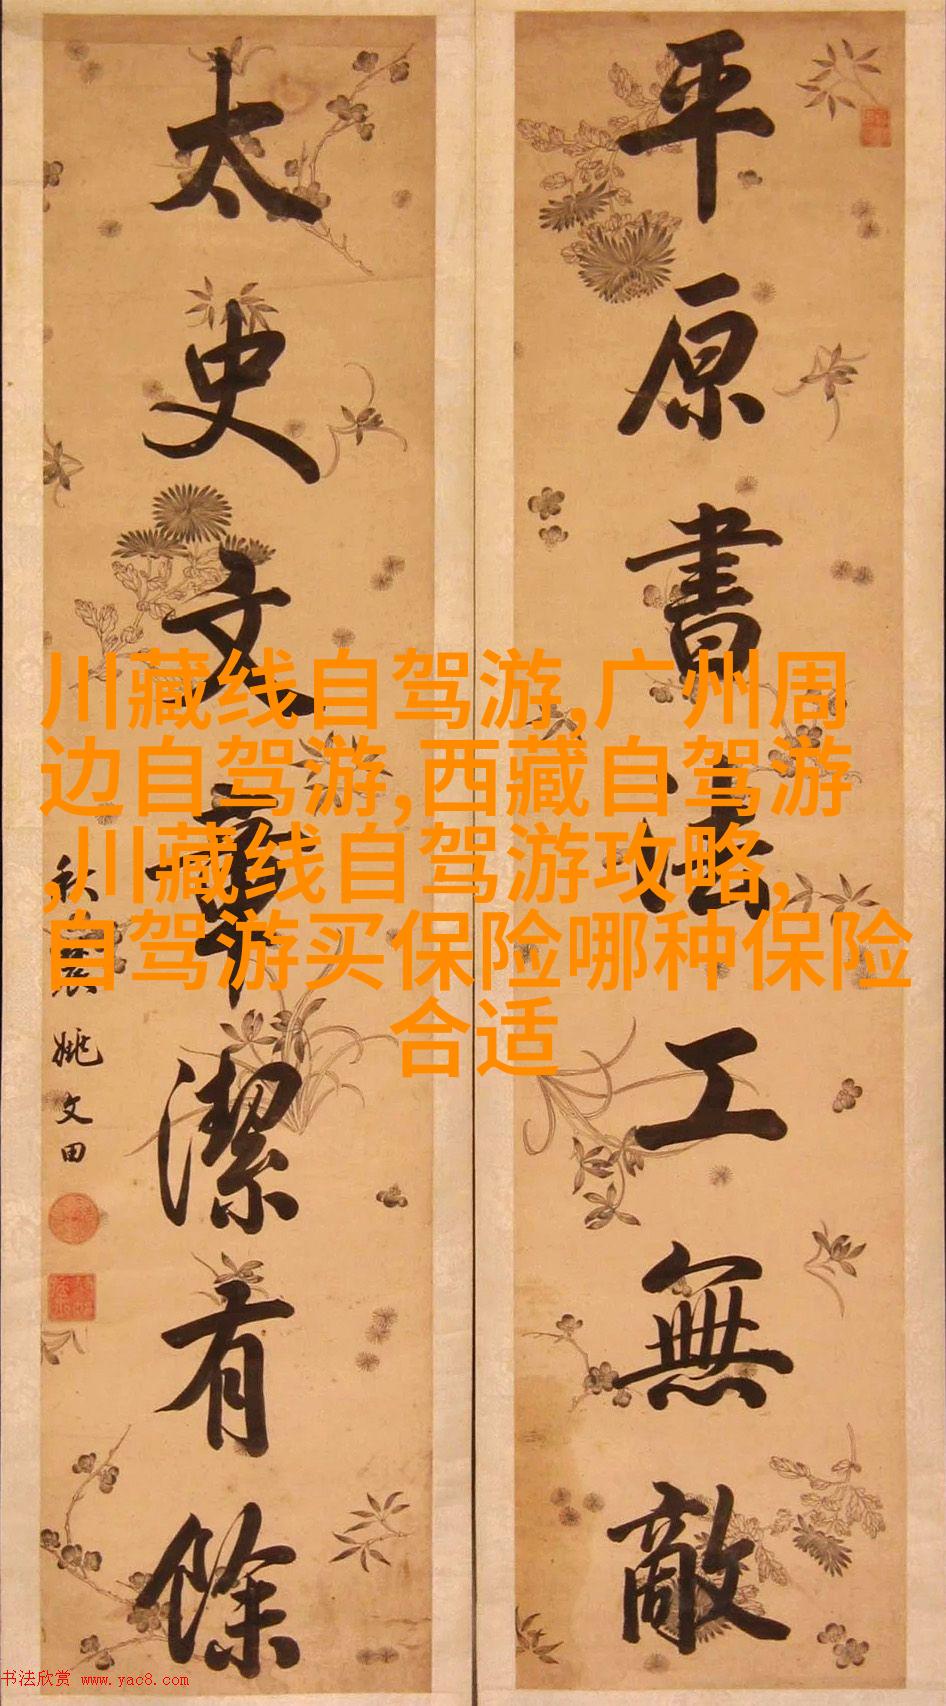 平原書法工無敵
太史文章潔有餘
秋農姚文田
川藏线自驾游,广州周
边自驾游,西藏自驾游
,川藏线自驾游攻略,
自驾游买保险哪种保险
合适
书法欣赏 www.yac8.com